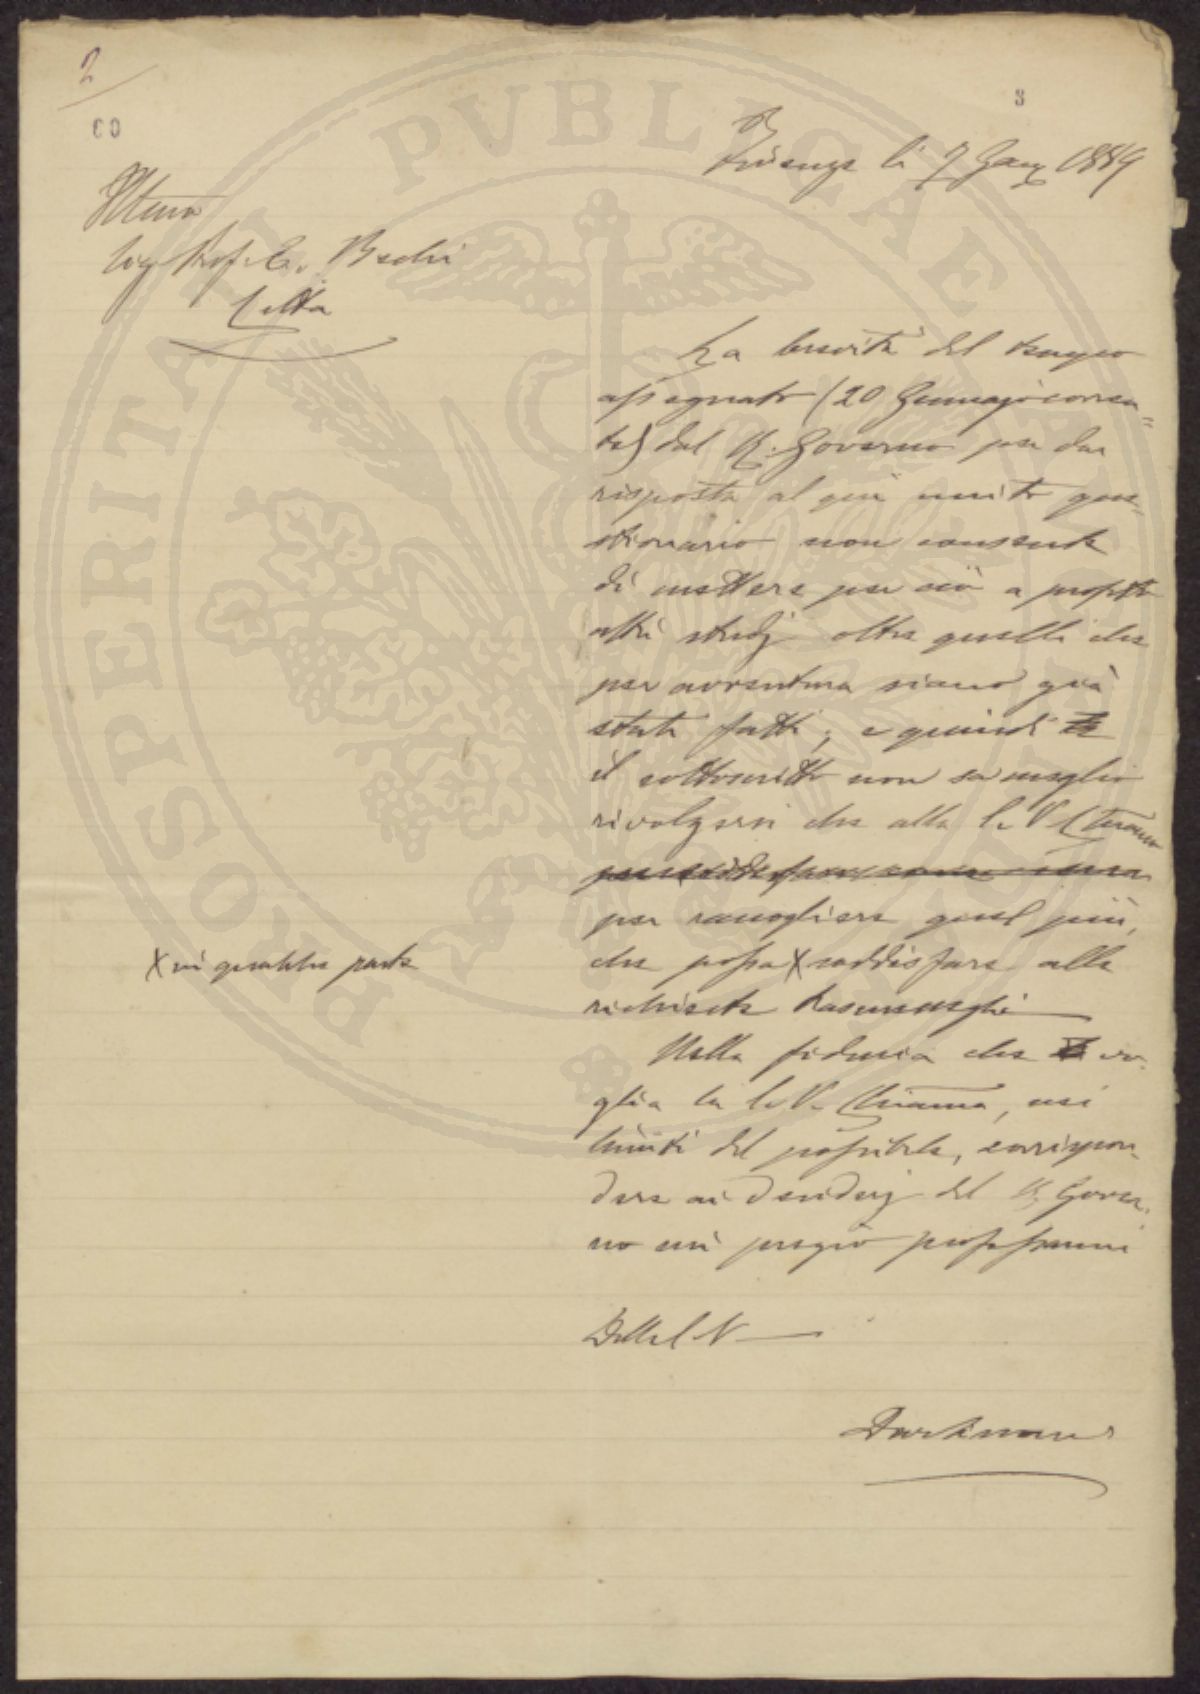 2
60
3
Firenze li 7 Genn 1889
Illmo
Sig Prof. E. Bechi
Città
La brevità del tempo
assegnato (20 Gennajo corren=
te) dal R. Governo per dar
risposta al qui unito ques=
tionario non consente
di mettere per ciò a profitto
altri studj oltre quelli che
per avventura siano già
stati fatti; e quindi
il sottoscritto non sa meglio
rivolgersi che alla S. V. Chiarma
per raccogliere quel più,
che possa X soddisfare alle
X in qualche parte
richieste
Nella fiducia che vo-
glia la S. V. Chiarma, nei
limiti del possibile, corrispon-
dere ai desiderj del R. Gover-
no mi pregio professarmi
Della S V